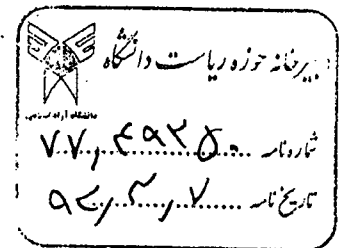 دبیرخانه حوزه ریاست دانشگاه
دانشگاه آزاد اسلامی
شماره نامه
تاریخ نامه ۹۲٫۳٫۷